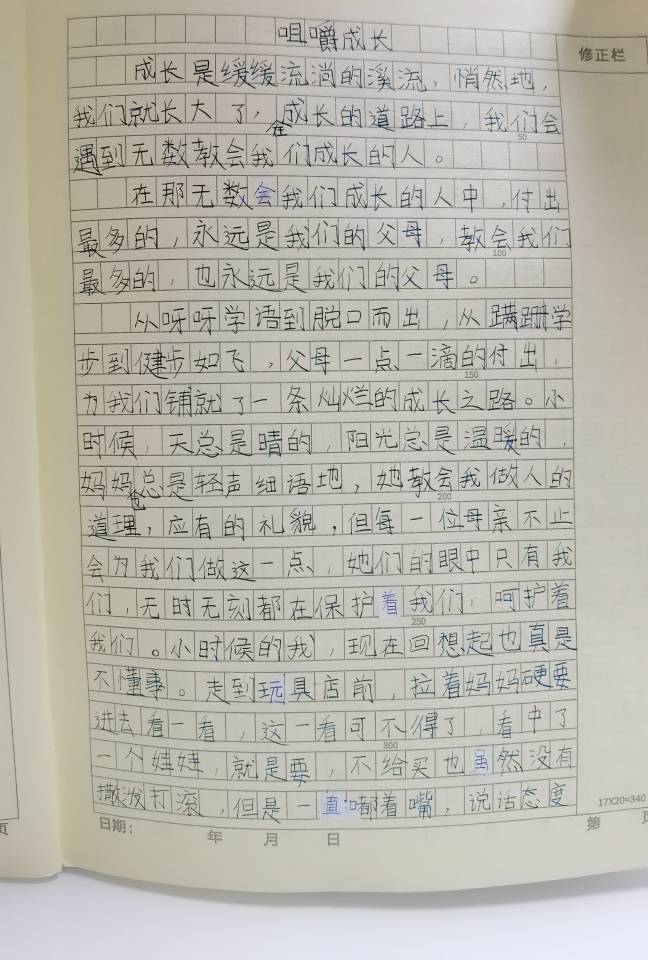 咀嚼成长
修正栏
成长是缓缓流淌的溪流，悄然地，
我们就长大了，在成长的道路上，我们会
50
遇到无数教会我们成长的人。
在那无数会我们成长的人中，付出
最多的，永远是我们的父母，教会我们
100
最多的，也永远是我们的父母。
从呀呀学语到脱口而出，从蹒跚学
步到健步如飞，父母一点一滴的付出，
150
为我们铺就了一条灿烂的成长之路。小
时候，天总是晴的，阳光总是温暖的，
妈妈也总是轻声细语地，她教会我做人的
200
道理，应有的礼貌，但每一位母亲不止
会为我们做这一点，她们的眼中只有我
们，无时无刻都在保护着我们，呵护着
250
我们。小时候的我，现在回想起也真是
不懂事。走到玩具店前，拉着妈妈硬要
进去看一看，这一看可不得了，看中了
300
一个娃娃，就是要，不给买也虽然没有
撒泼打滚，但是一直嘟着嘴，说话态度
17X20=340
日期： 年 月 日
第 页
页